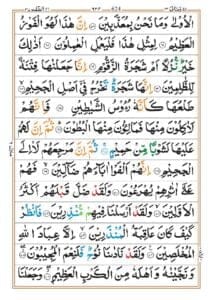 الْاُوْلٰى وَمَا نَحْنُ بِمُعَذَّبِيْنَ ۝ اِنَّ هٰذَا لَهُوَ الْفَوْزُ
الْعَظِيْمُ ۝ لِمِثْلِ هٰذَا فَلْيَعْمَلِ الْعٰمِلُوْنَ ۝ اَذٰلِكَ
خَيْرٌ نُّزُلًا اَمْ شَجَرَةُ الزَّقُّوْمِ ۝ اِنَّا جَعَلْنٰهَا فِتْنَةً
لِّلظّٰلِمِيْنَ ۝ اِنَّهَا شَجَرَةٌ تَخْرُجُ فِيْٓ اَصْلِ الْجَحِيْمِ ۝
طَلْعُهَا كَاَنَّهٗ رُءُوْسُ الشَّيٰطِيْنِ ۝ فَاِنَّهُمْ
لَاٰكِلُوْنَ مِنْهَا فَمَالِـُٔوْنَ مِنْهَا الْبُطُوْنَ ۝ ثُمَّ اِنَّ لَهُمْ
عَلَيْهَا لَشَوْبًا مِّنْ حَمِيْمٍ ۝ ثُمَّ اِنَّ مَرْجِعَهُمْ لَا۟اِلَى
الْجَحِيْمِ ۝ اِنَّهُمْ اَلْفَوْا اٰبَآءَهُمْ ضَآلِّيْنَ ۝ فَهُمْ
عَلٰٓى اٰثٰرِهِمْ يُهْرَعُوْنَ ۝ وَلَقَدْ ضَلَّ قَبْلَهُمْ اَكْثَرُ
الْاَوَّلِيْنَ ۝ وَلَقَدْ اَرْسَلْنَا فِيْهِمْ مُّنْذِرِيْنَ ۝ فَانْظُرْ
كَيْفَ كَانَ عَاقِبَةُ الْمُنْذَرِيْنَ ۝ اِلَّا عِبَادَ اللّٰهِ
الْمُخْلَصِيْنَ ۝ وَلَقَدْ نَادٰىنَا نُوْحٌ فَلَنِعْمَ الْمُجِيْبُوْنَ ۝
وَنَجَّيْنٰهُ وَاَهْلَهٗ مِنَ الْكَرْبِ الْعَظِيْمِ ۝ وَجَعَلْنَا